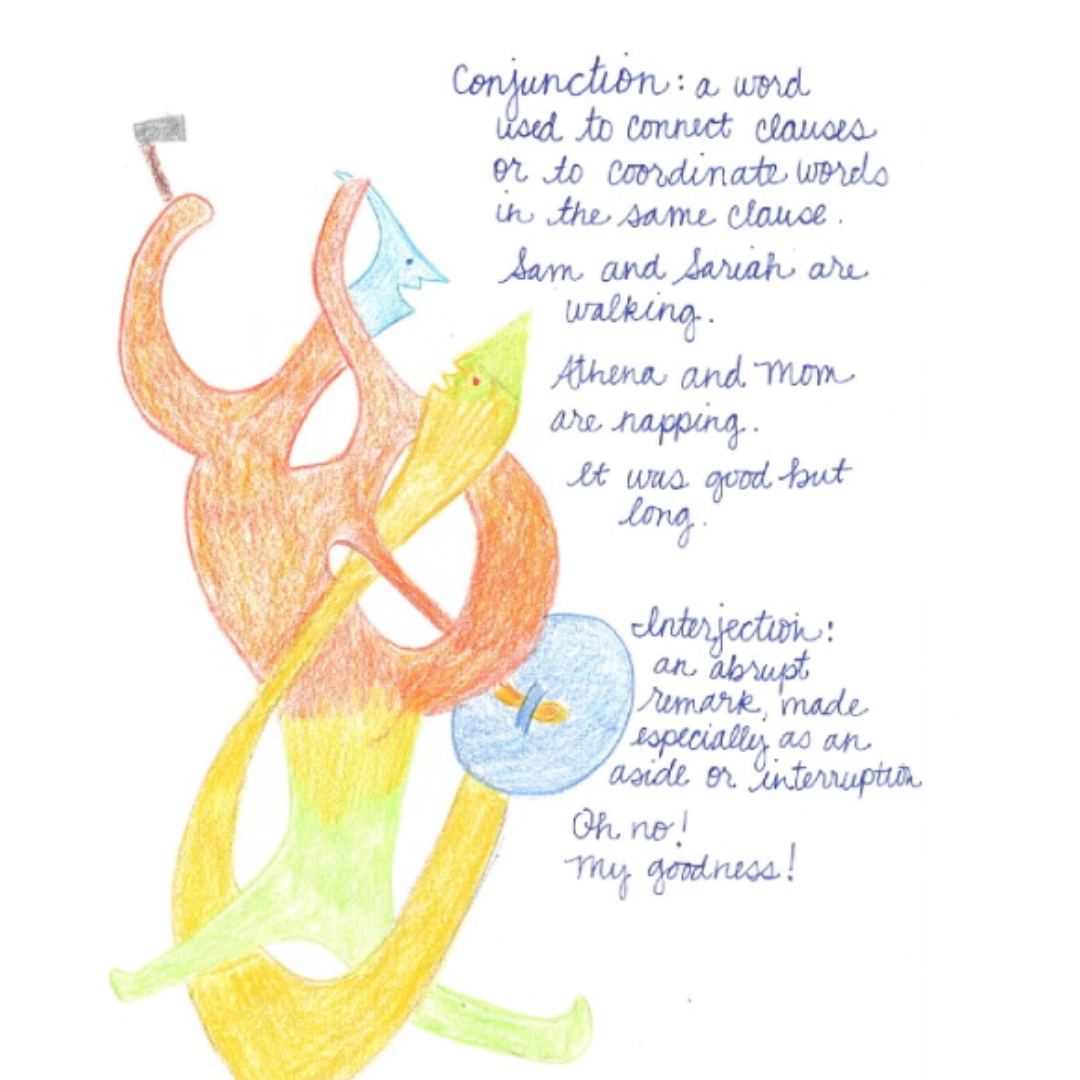 Conjunction: a word
used to connect clauses
or to coordinate words
in the same clause.
Sam and Sariah are
walking.
Athena and Mom
are napping.
It was good but
long.
Interjection:
an abrupt
remark, made
especially as an
aside or interruption
Oh no!
My goodness!